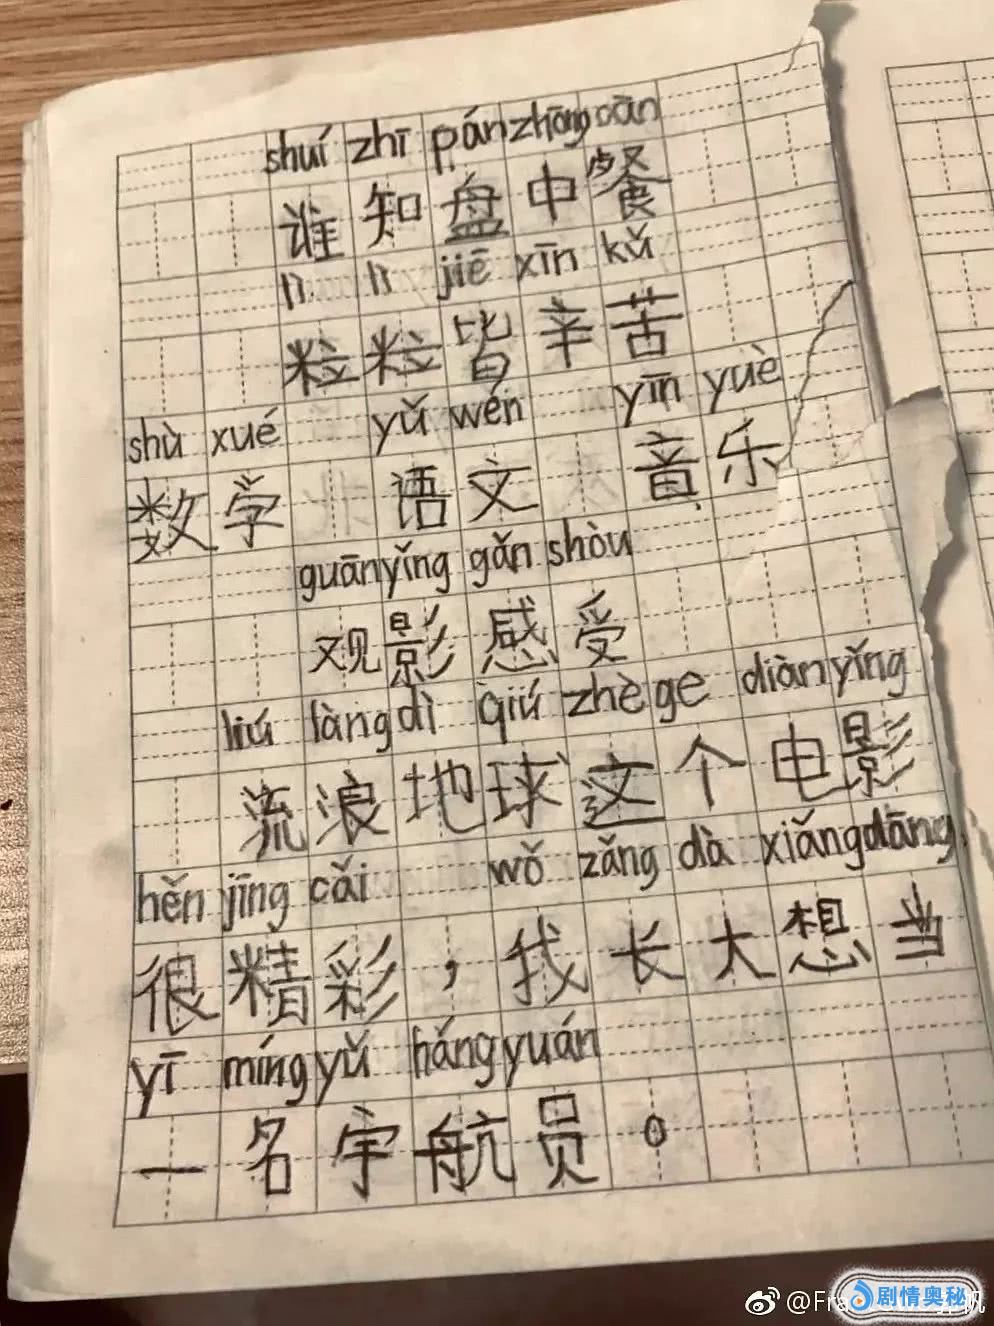 shuí zhī pán zhōng cān
谁知盘中餐
lì lì jiē xīn kǔ
粒粒皆辛苦
shù xué yǔ wén yīn yuè
数学 语文 音乐
guān yǐng gǎn shòu
观影感受
liú làng dì qiú zhè ge diàn yǐng
流浪地球这个电影
hěn jīng cǎi wǒ zǎng dà xiǎng dāng
很精彩，我长大想当
yī míng yǔ háng yuán
一名宇航员。
剧情奥秘